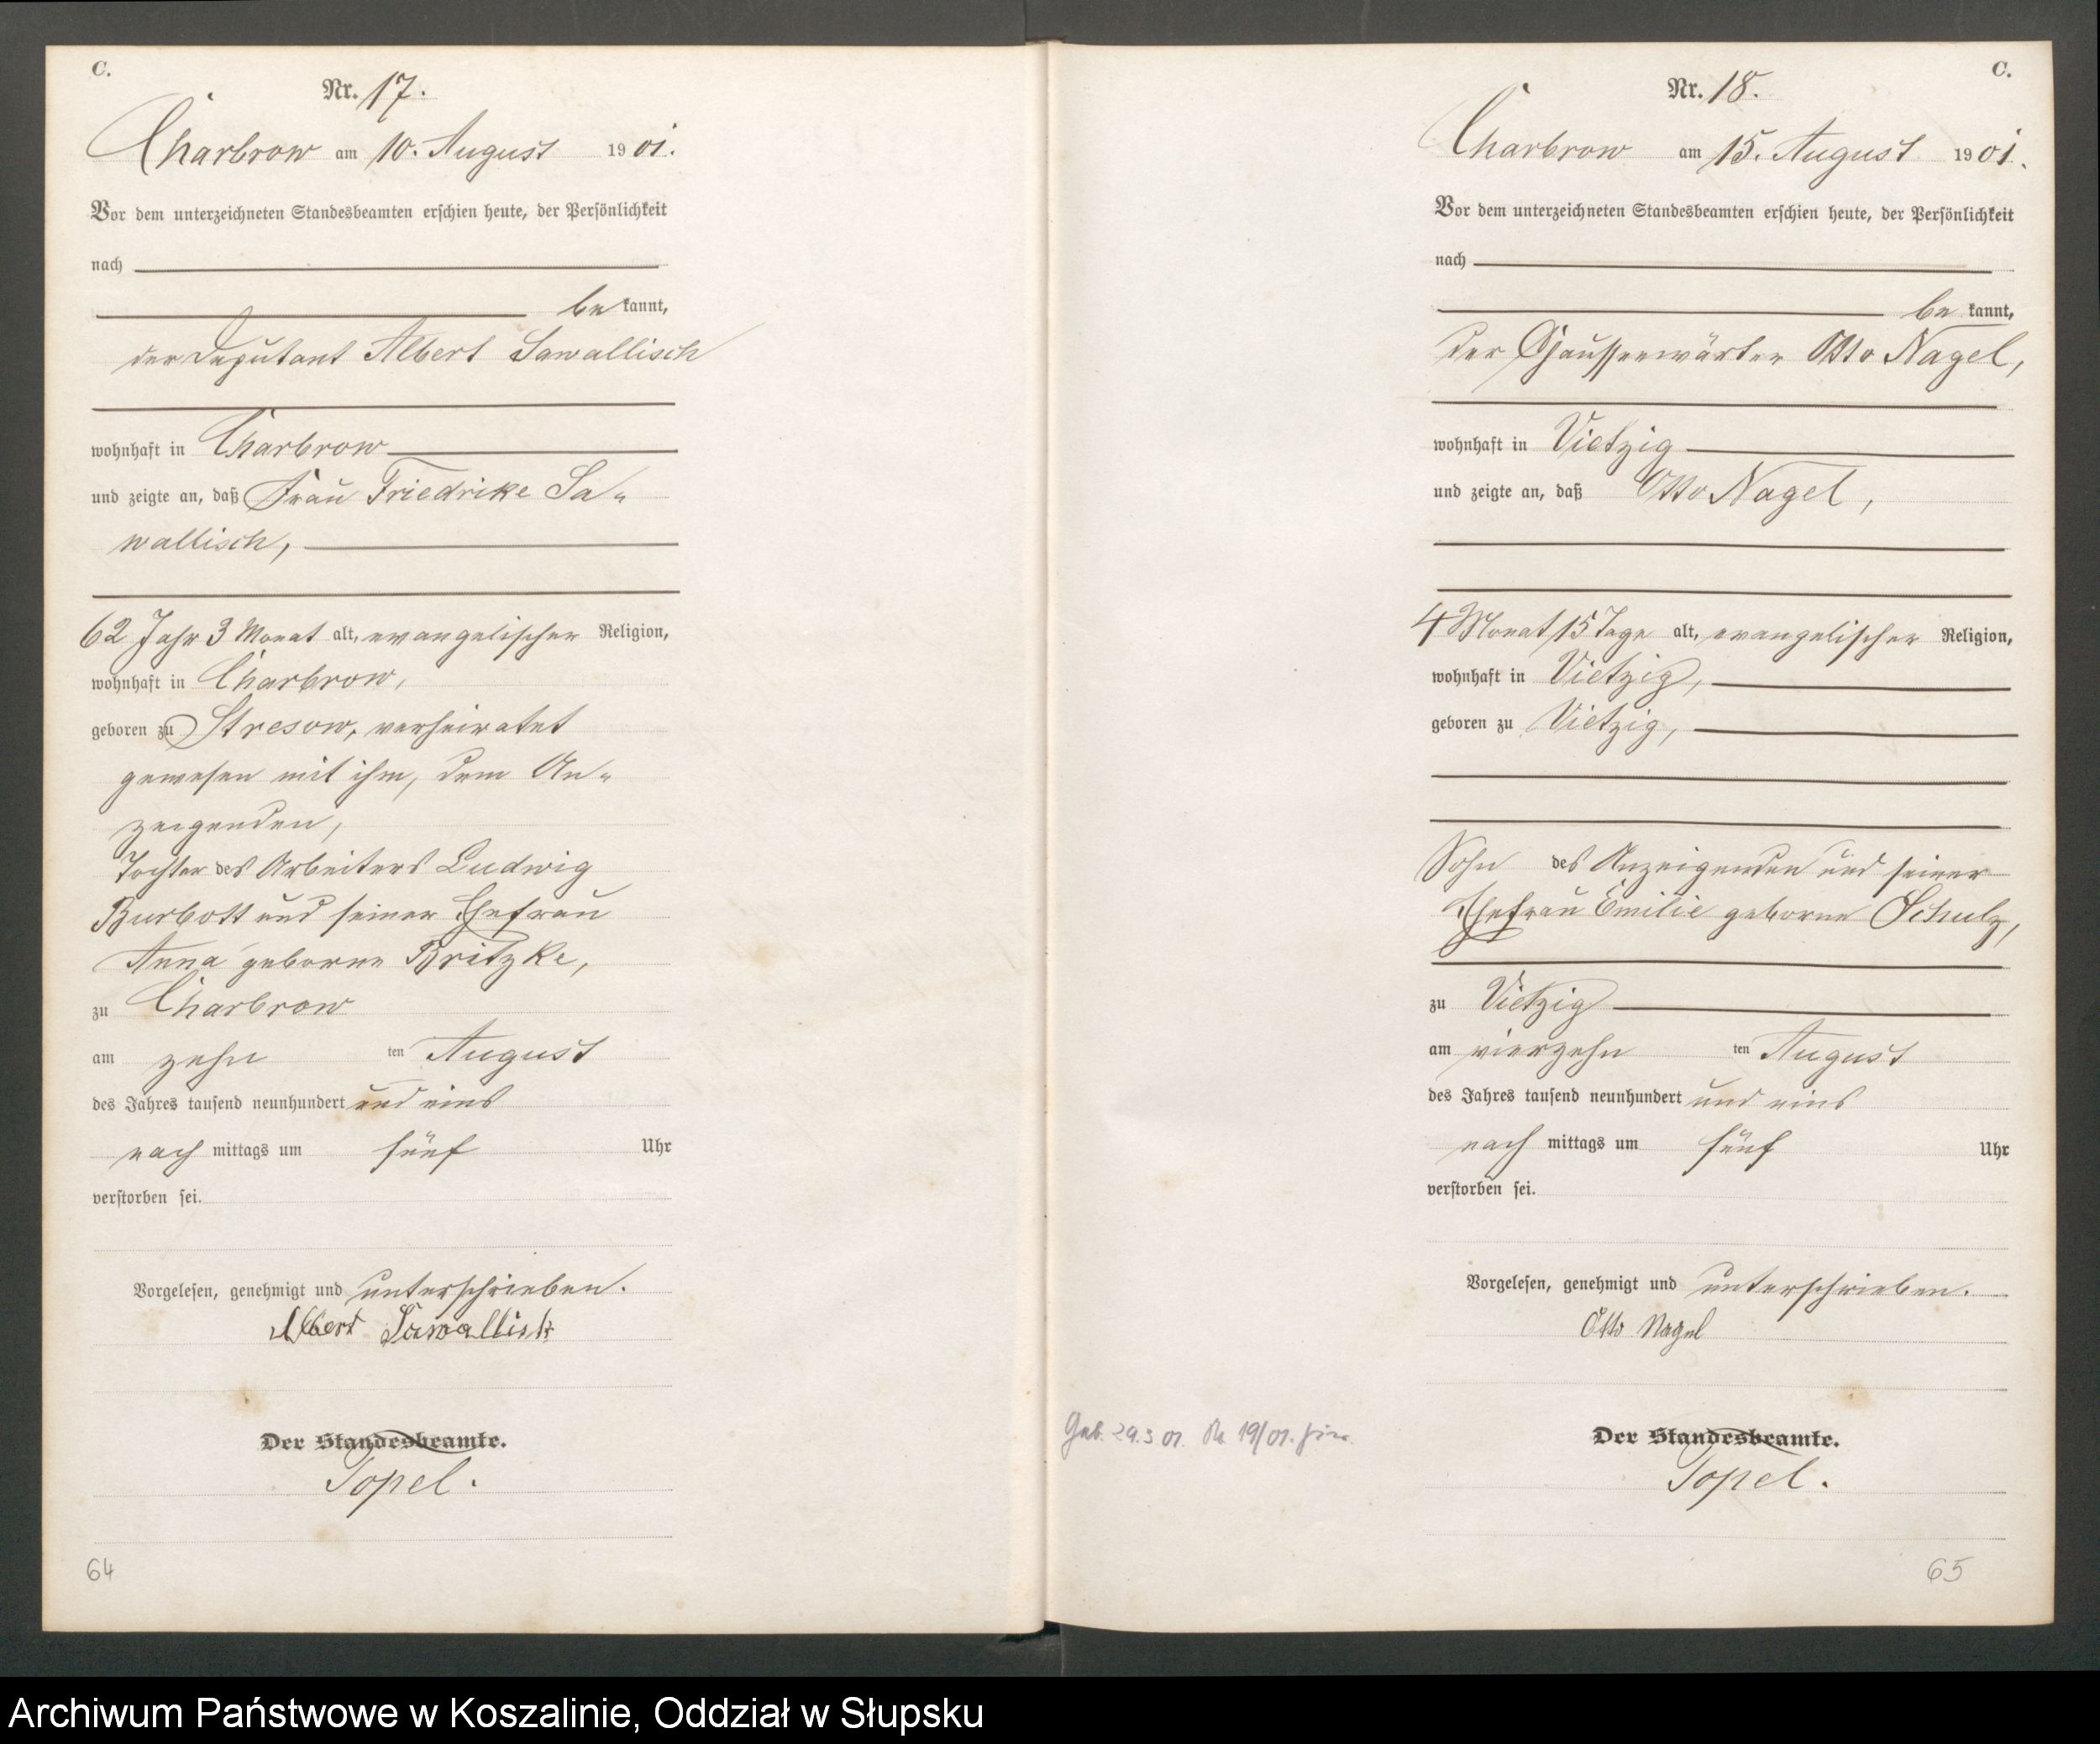 C.
Nr. 17.
Charbrow am 10. August 1901.
Vor dem unterzeichneten Standesbeamten erschien heute, der Persönlichkeit
nach
be kannt,
der Deputant Albert Sawallisch
wohnhaft in Charbrow
und zeigte an, daß Frau Friedrike Sa-
wallisch,
62 Jahr 3 Monat alt, evangelischer Religion,
wohnhaft in Charbrow,
geboren zu Stresow, verheiratet
gewesen mit ihm, dem An-
zeigenden,
Tochter des Arbeiters Ludwig
Burbott und seiner Ehefrau
Anna geborne Britzke,
zu Charbrow
am zehn ten August
des Jahres tausend neunhundert und eins
nach mittags um fünf Uhr
verstorben sei.
Vorgelesen, genehmigt und unterschrieben.
Albert Sawallish
Der Standesbeamte.
Topel.
64
C.
Nr. 18.
Charbrow am 15. August 1901.
Vor dem unterzeichneten Standesbeamten erschien heute, der Persönlichkeit
nach
be kannt,
der Chausseewärter Otto Nagel,
wohnhaft in Vietzig
und zeigte an, daß Otto Nagel,
4 Monat 15 Tage alt, evangelischer Religion,
wohnhaft in Vietzig,
geboren zu Vietzig,
Sohn des Anzeigenden und seiner
Ehefrau Emilie geborne Schulz,
zu Vietzig
am vierzehn ten August
des Jahres tausend neunhundert und eins
nach mittags um fünf Uhr
verstorben sei.
Vorgelesen, genehmigt und unterschrieben.
Otto Nagel
Geb. 29.3 01. Nr 19/01. hier
Der Standesbeamte.
Topel.
65
Archiwum Państwowe w Koszalinie, Oddział w Słupsku